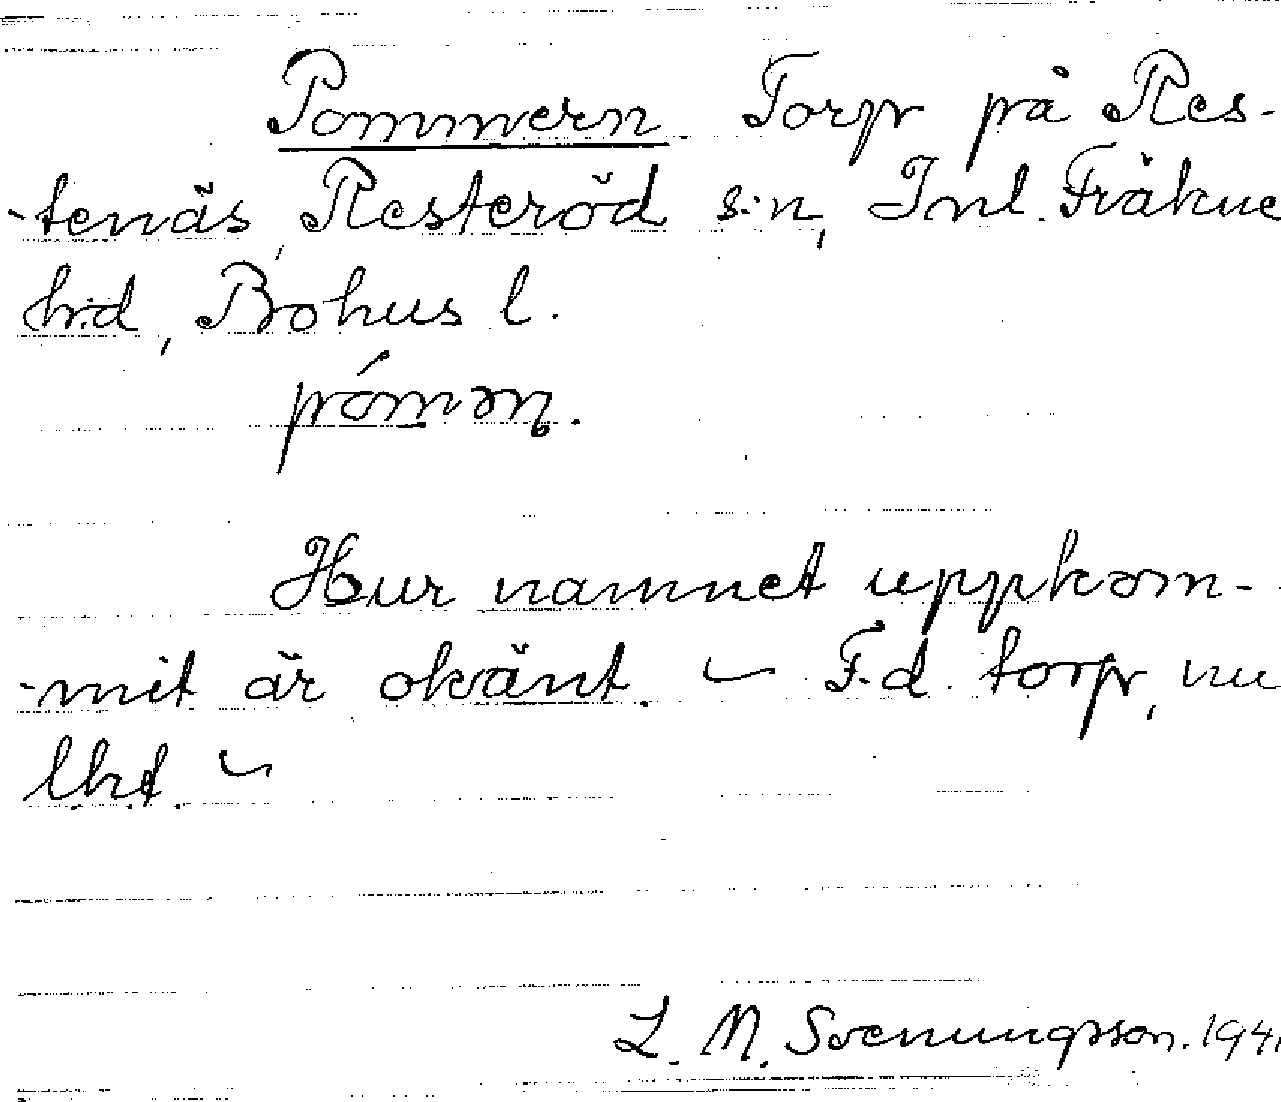 Pommern Torp på Res-
-tenäs, Resteröd s:n, Inl. Fräkne
h:d, Bohus l.
pómən.
Hur namnet uppkom-
-mit är okänt. – F.d. torp, nu
lht. –
L. M. Svenungsson. 194